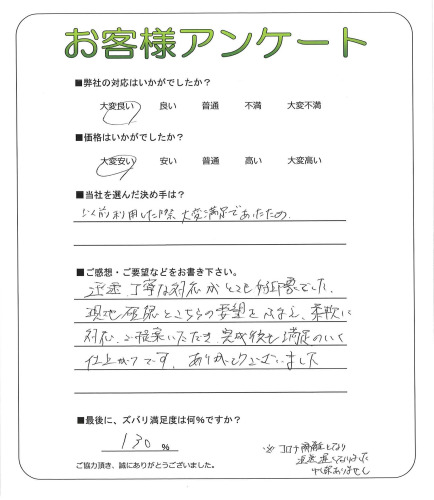 お客様アンケート
■弊社の対応はいかがでしたか？
大変良い 良い 普通 不満 大変不満
■価格はいかがでしたか？
大変安い 安い 普通 高い 大変高い
■当社を選んだ決め手は？
以前利用した際、大変満足であったため
■ご感想・ご要望などをお書き下さい。
迅速、丁寧な対応がとても好印象でした。
現地確認とこちらの要望をふまえ、柔軟に
対応、ご提案いただき、完成後も満足のいく
仕上がりです。ありがとうございました
■最後に、ズバリ満足度は何％ですか？
130 ％
ご協力頂き、誠にありがとうございました。
※コロナ
返送遅くなりました
申し訳ありません